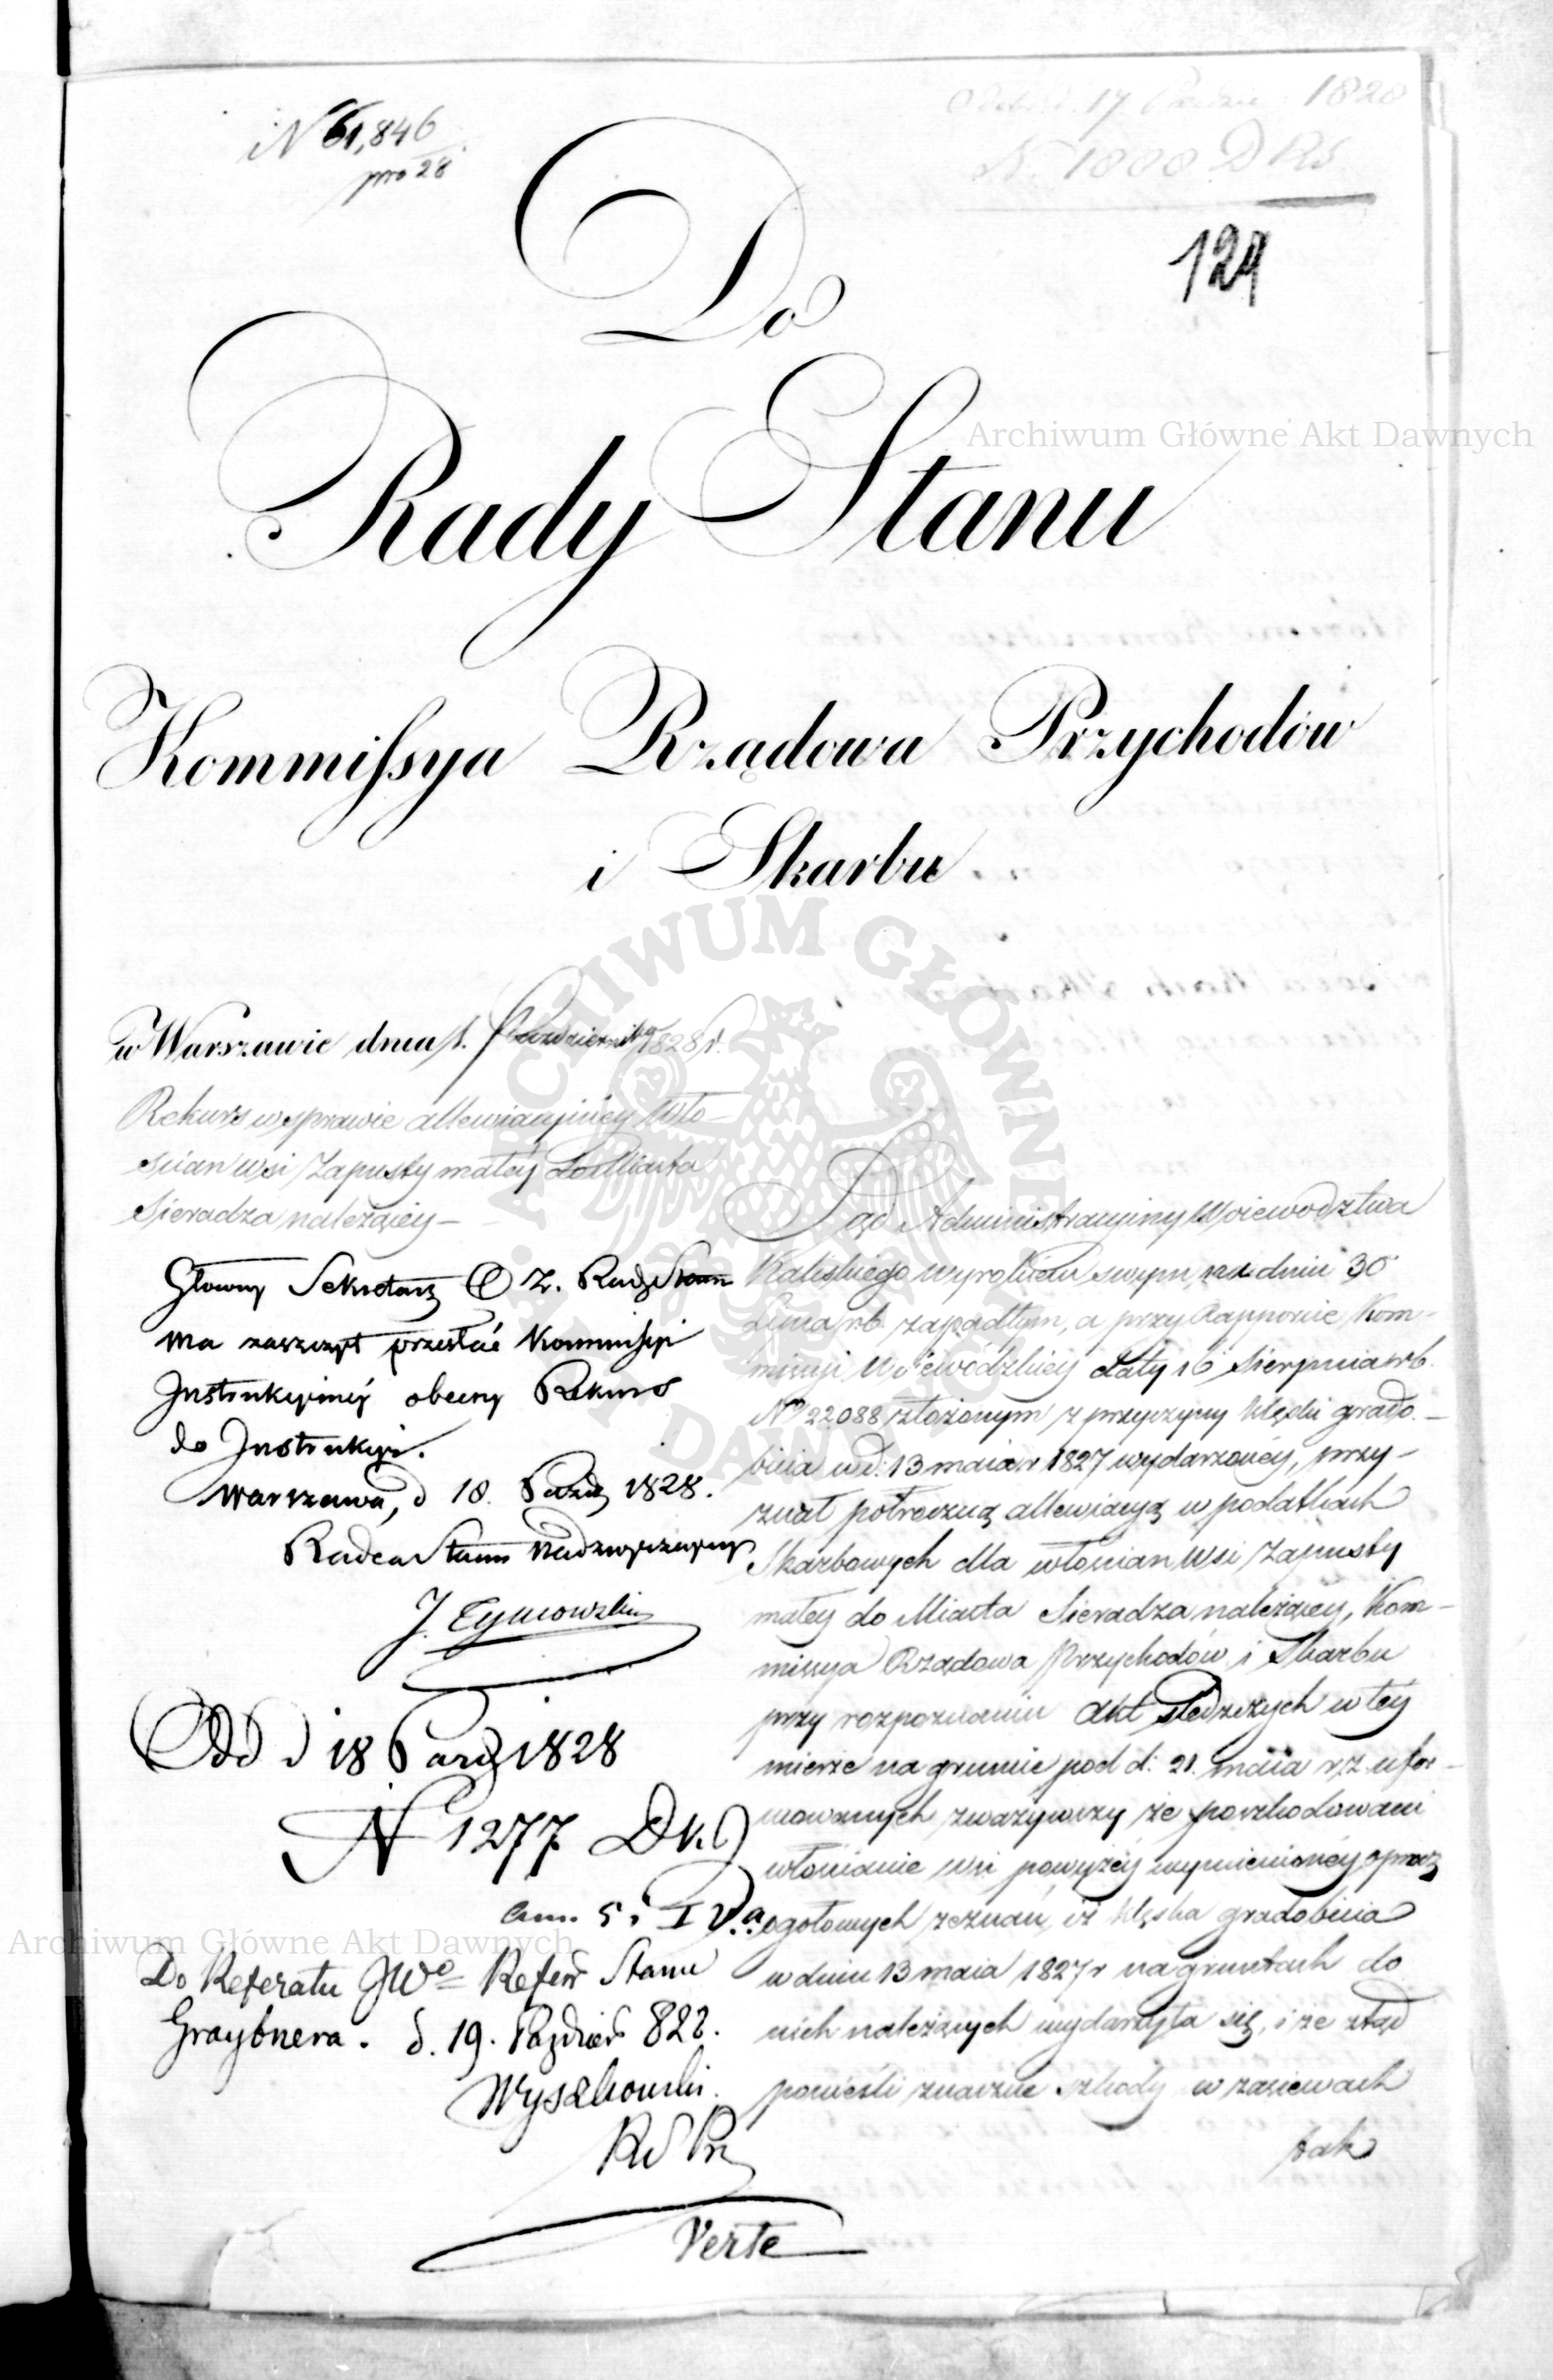 N 61,846
pro 28
17 1828
N. 1888 D RS
129
Do
Rady Stanu
Archiwum Główne Akt Dawnych
Kommissya Rządowa Przychodów
i Skarbu
ARCHIWUM GŁÓWNE AKT DAWNYCH
w Warszawie dnia 1. Października 1828 r.
Rekurs w sprawie allewiacyinéy Wło-
scian wsi Zapusty małey do Miasta
Sieradza należącéy –
Głowny Sekretarz Rady Stanu
ma zaszczyt przesłać Kommissyi
Instrukcyinéy obecny Rekurs
do Instrukcyi.
Warszawa, d 18. Paźdz 1828.
Radca Stanu Nadzwyczayny
J. Tymowski
Odd d 18 Paźdz 1828
N 1277 DKJ
Do Referatu JWo Refer Stanu
Graybnera. d. 19. Paździer 828.
Wyszkowski.
Verte
Sąd Administracyiny Woiewodztwa
Kaliskiego wyrokiem swym, na dniu 30
Lipca r.b. zapadłym, a przy Rapporcie Kom-
missyi Woiewódzkiéy daty 16 Sierpnia r.b.
No 22088 złożonym z przyczyny klęski grado-
bicia w d: 13 maia r 1827 wydarzonéy, przy-
znał potroczną allewiacyą w podatkach
Skarbowych dla włoscian wsi Zapusty
małey do Miasta Sieradza należącéy, Kom-
missya Rządowa Przychodów i Skarbu
przy rozpoznaniu Akt śledczych w tey
mierze na gruncie pod d: 21. maia r.z. ufor-
mowanych zważywszy że poszkodowani
włościanie wsi powyżéy wymienionéy oprócz
ogołowych zeznań, iż klęska gradobicia
w dniu 13 maia 1827 r na gruntach do
nich należących wydarzyła się, i że ztąd
ponieśli znaczne szkody w zasiewach
tak
Archiwum Główne Akt Dawnych